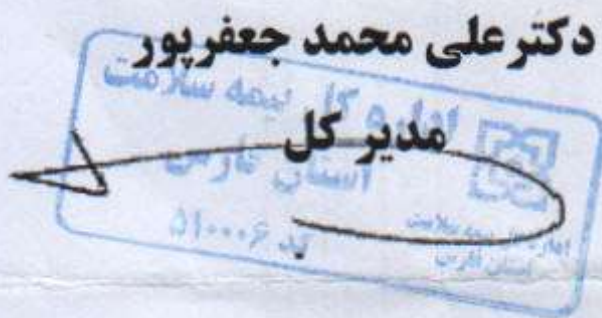 دکتر علی محمد جعفرپور
مدیر کل
اداره کل بیمه سلامت
استان فارس
کد ۵۱۰۰۰۶
اداره کل بیمه سلامت
استان فارس